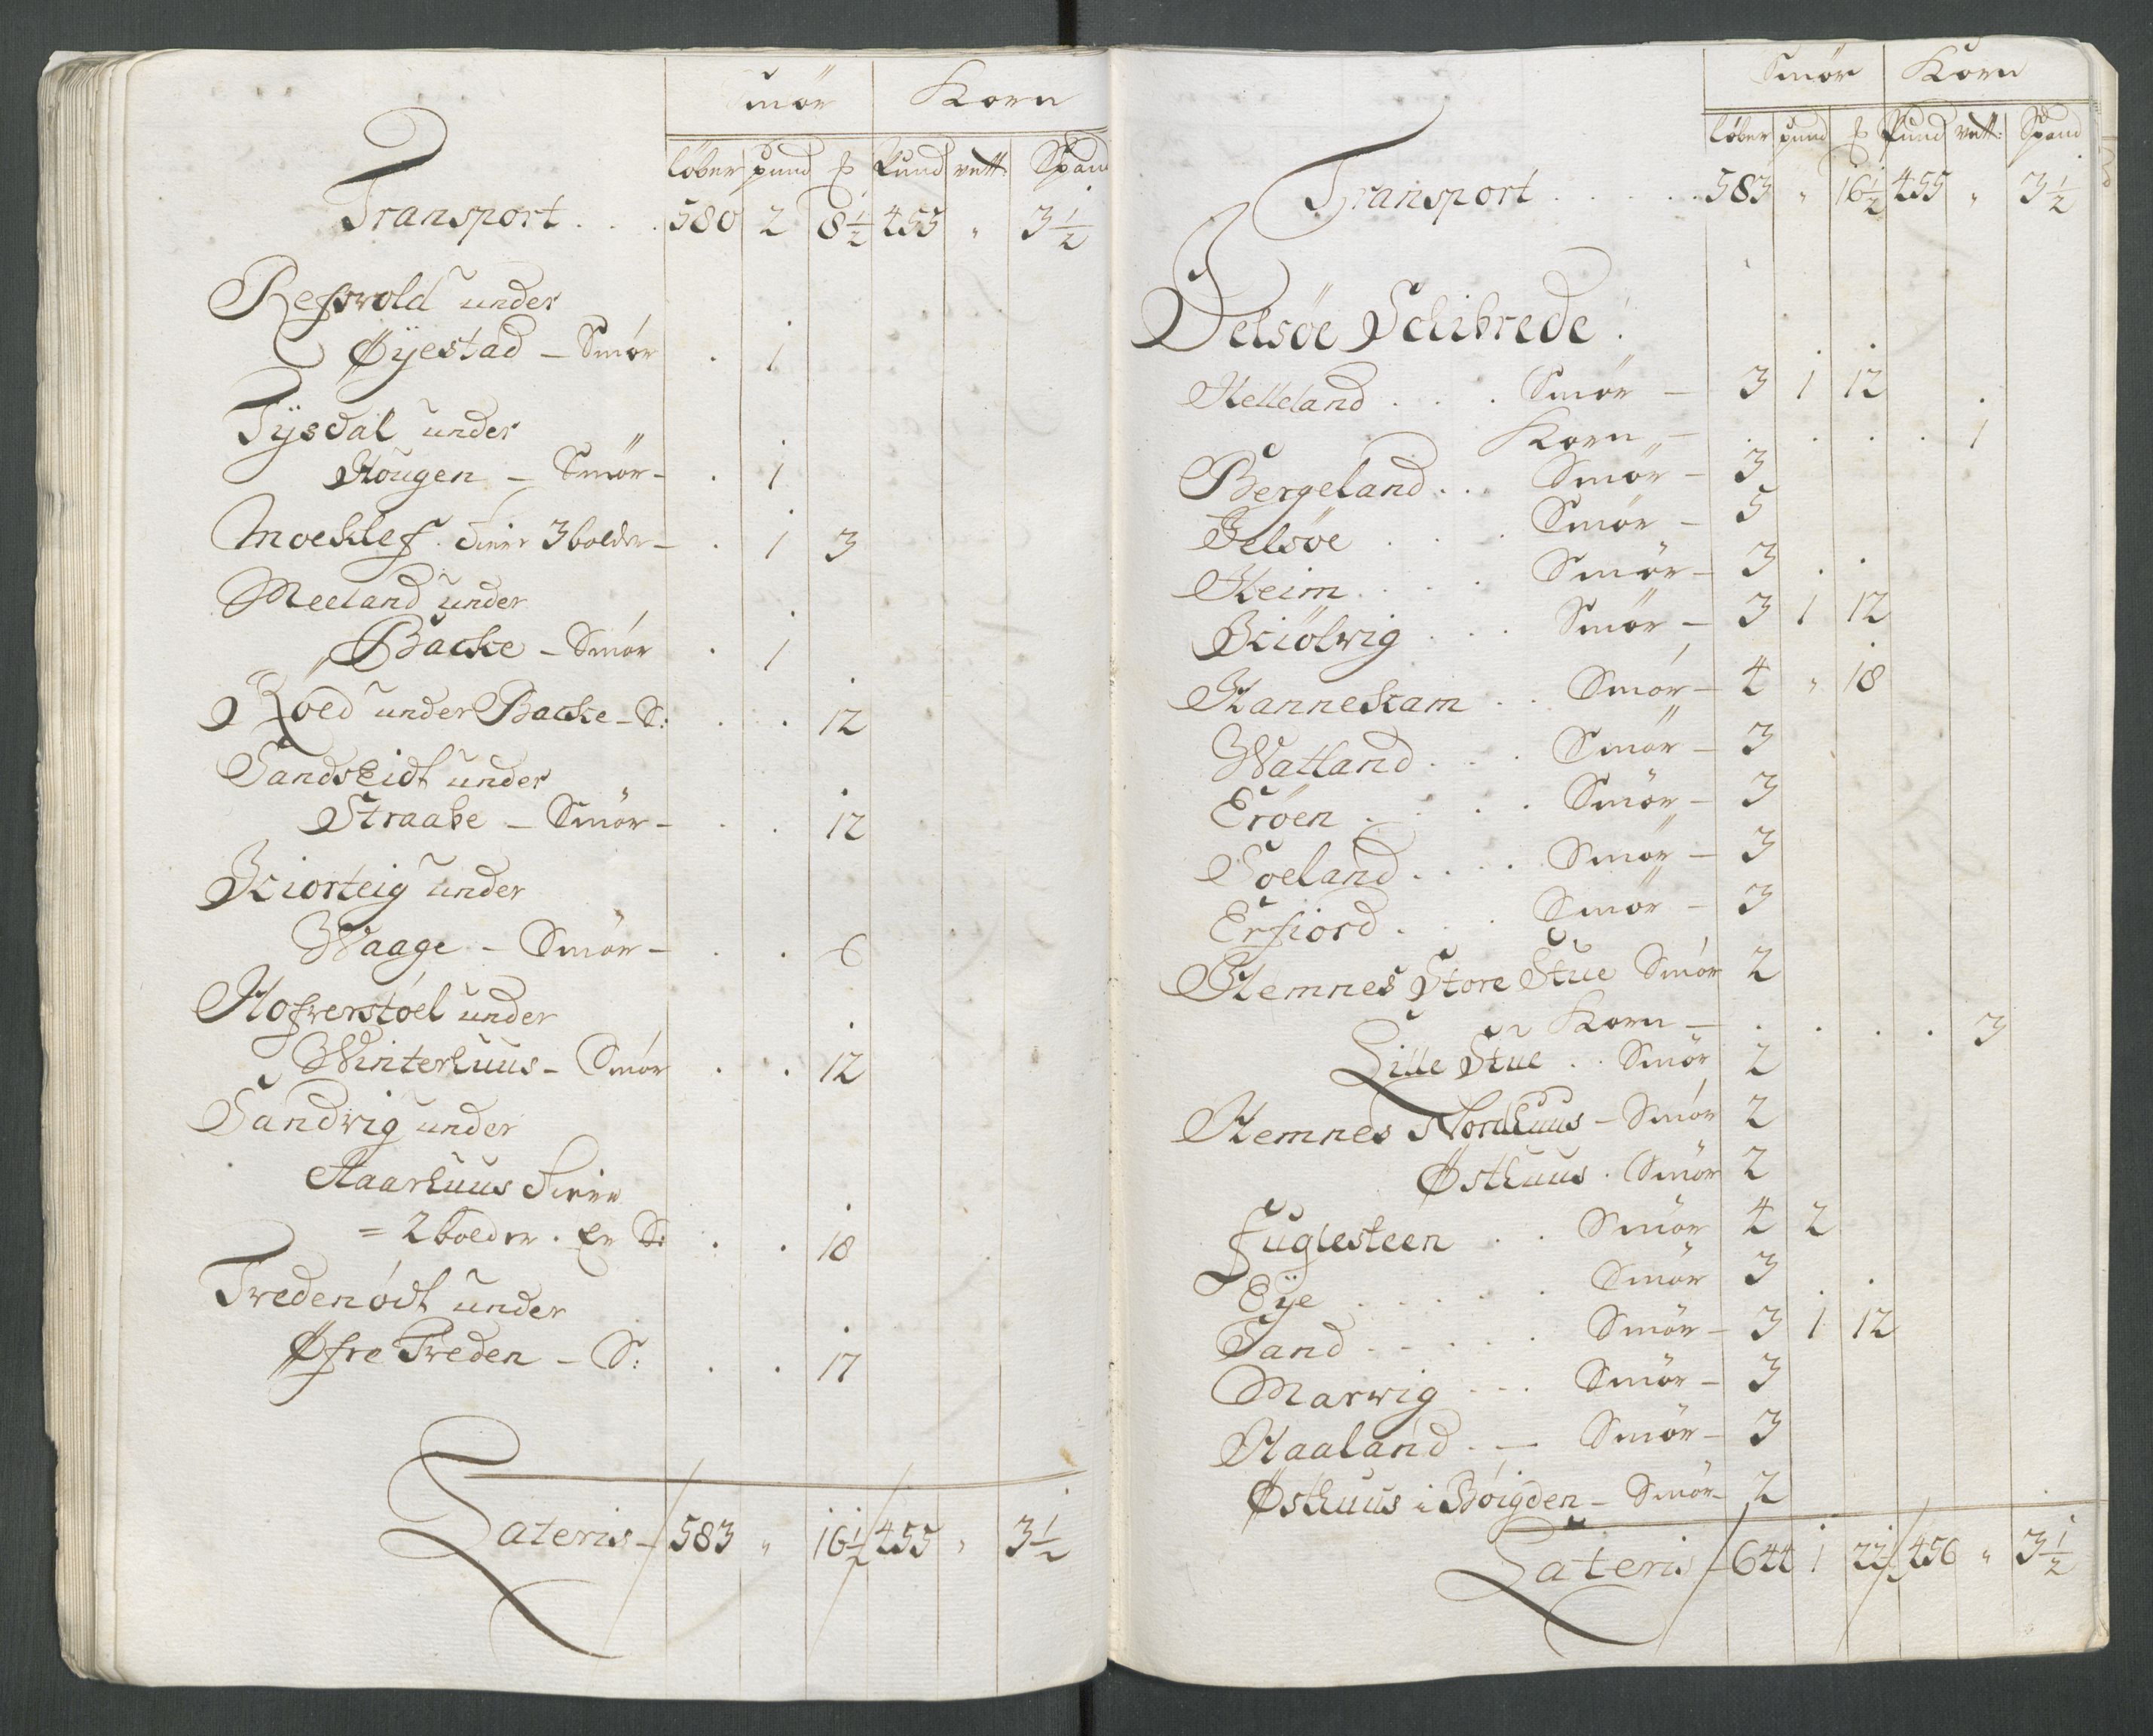 Smör Korn
löber pund ℔ Pund vett: Spand
Transport . . . 580 2 8½ 455 " 3½
Refsvold under
Øÿestad - Smör . 1
Tÿsdal under
Hougen - Smör - . 1
Moeklef . 3 bolder - . 1 3
Meeland under
Backe - Smör . 1
Roed under Backe - S: . . 12
Sandseidt under
Straabe - Smör - . . 12
Kiorteig under
Waage - Smör - . . 6
Hofrerstöel under
Winterhuus - Smör . . 12
Sandvig under
Haarhuus
= 2 bolder . Er S: . . 18
Tredenödt under
Øfre Treden - S: . . 17
Lateris - 583 " 16½ 455 " 3½
Smör Korn
löber pund ℔ Pund vett: Spand
Transport . . . . . 583 " 16½ 455 " 3½
Jelsöe Schibrede .
Helleland . . . Smör - 3 1 12
Korn - . . . . 1
Bergeland . . Smör - 3
Jelsöe . . . Smör - 5
Heim . . . . Smör - 3 . .
Kiölvig . . . Smör - 3 1 12
Hannekam . . Smör - 4 " 18
Watland . . . Smör - 3
Eröen . . . . Smör - 3
Soeland . . . . Smör - 3
Erfiord . . . Smör - 3
Hemnes Store Stue Smör 2
Korn - . . . . 3
Lille Stue . . Smör 2
Hemnes Nordhuus - Smör 2
Østhuus . Smör 2
Fuglesteen . . Smör 4 2
Eÿe . . . . . Smör 3 . .
Sand - - . . . Smör - 3 1 12
Marvig - - . Smör - 3
Haaland . - Smör - 3
Østhuus i Böigden - Smör - 2
Lateris - 644 1 22½ 456 " 3½